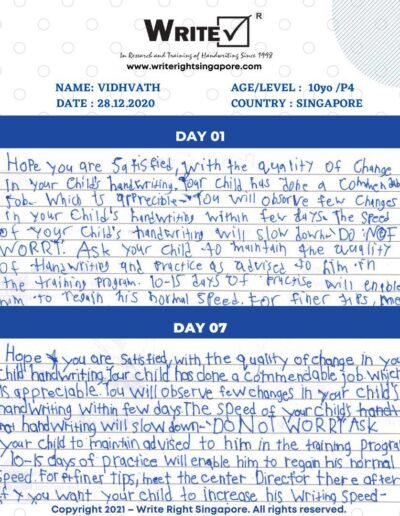 WRITE
R
In Research and Training of Handwriting Since 1998
www.writerightsingapore.com
NAME: VIDHVATH
AGE/LEVEL : 10yo /P4
DATE : 28.12.2020
COUNTRY : SINGAPORE
DAY 01
Hope you are Satisfied, with the quality of Change
in your Child's handwriting. Your Child has done a Commendab
Job. Which is apprecible. You will observe few Changes
in your Child's handwriting within few days. The Speed
of your Child's handwriting will slow down. DO NOT
WORRY. Ask your Child to maintain the quality
of Handwriting and Practice as advised to him in
the training Program. 10-15 days of Practise will enable
him to regain his normal Speed. For finer tips, me
DAY 07
Hope you are Satisfied, with the quality of change in you
child handwriting. Your child has done a commendable job which
is appreciable. You will observe few changes in your child's
handwriting within few days. The speed of your child's
handwriting will slow down- DO NOT WORRY. Ask
your child to maintain advised to him in the training progra
10-15 days of practice will enable him to regain his normal
speed. For finer tips, meet the center Director there after
if you want your child to increase his Writing speed-
Copyright 2021 – Write Right Singapore. All rights reserved.